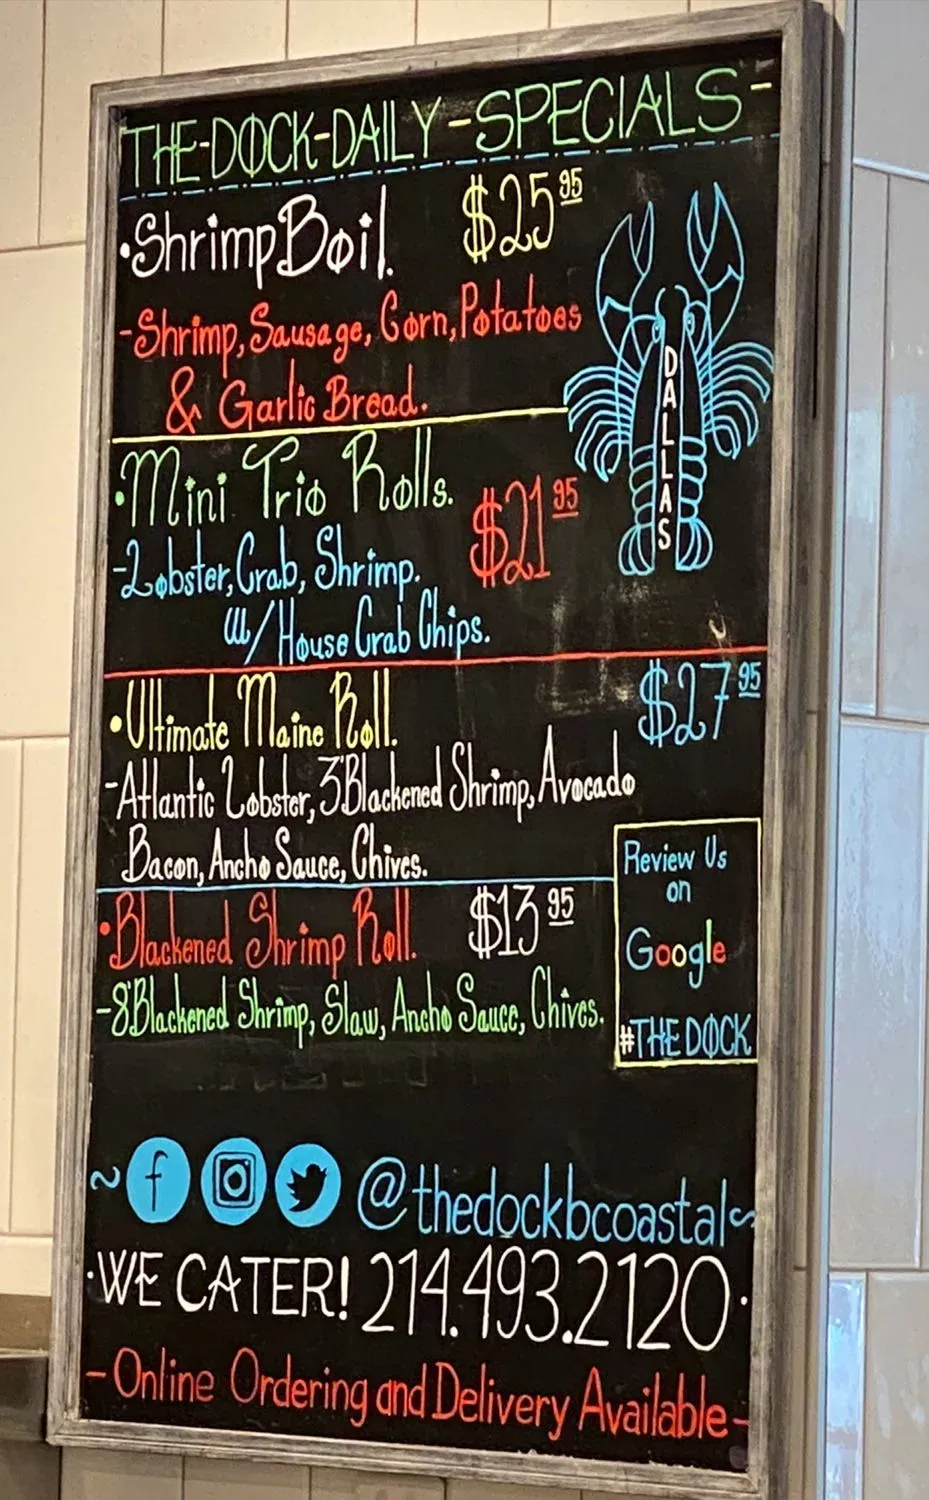 THE-DOCK-DAILY-SPECIALS-
•Shrimp Boil. $25 95
-Shrimp, Sausage, Corn, Potatoes
& Garlic Bread.
•Mini Trio Rolls. $21 95
-Lobster, Crab, Shrimp.
W/House Crab Chips.
DALLAS
•Ultimate Maine Roll. $27 95
-Atlantic Lobster, 3 Blackened Shrimp, Avocado
Bacon, Ancho Sauce, Chives.
•Blackened Shrimp Roll. $13 95
-8 Blackened Shrimp, Slaw, Ancho Sauce, Chives.
Review Us
on
Google
#THE DOCK
~ f @thedockbcoastal~
•WE CATER! 214.493.2120•
-Online Ordering and Delivery Available-